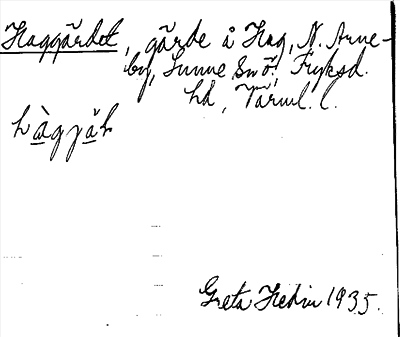 Haggärdet, gärde å Hag, N. Arne-
by, Sunne sn Ö., Fryksd.
hd, Värml. l.
Greta Hedin 1935.